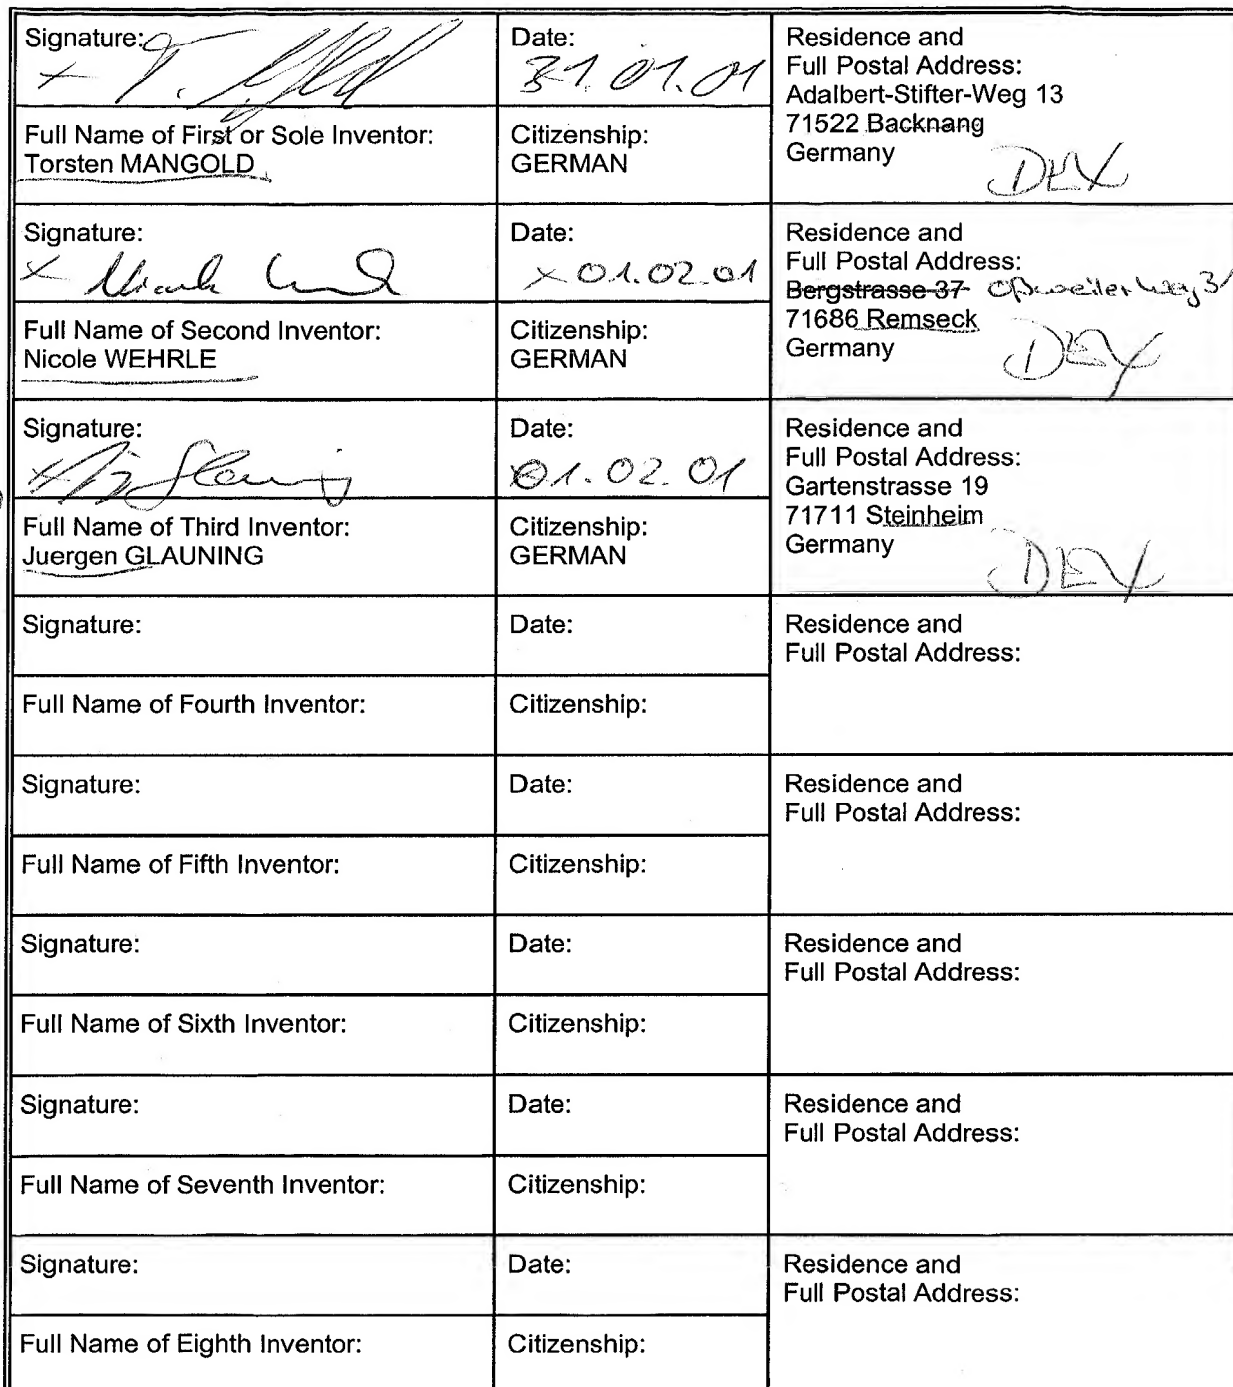 Signature:
Date:
Residence and
Full Postal Address:
Adalbert-Stifter-Weg 13
71522 Backnang
Germany
DEX
x T.
31.01.01
Full Name of First or Sole Inventor:
Torsten MANGOLD
Citizenship:
GERMAN
Signature:
x Nicole
Date:
x 01.02.01
Residence and
Full Postal Address:
Bergstrasse 37 Oßweiler Weg 31
71686 Remseck
Germany
DEX
Full Name of Second Inventor:
Nicole WEHRLE
Citizenship:
GERMAN
Signature:
x Glauning
Date:
01.02.01
Residence and
Full Postal Address:
Gartenstrasse 19
71711 Steinheim
Germany
DEX
Full Name of Third Inventor:
Juergen GLAUNING
Citizenship:
GERMAN
Signature:
Date:
Residence and
Full Postal Address:
Full Name of Fourth Inventor:
Citizenship:
Signature:
Date:
Residence and
Full Postal Address:
Full Name of Fifth Inventor:
Citizenship:
Signature:
Date:
Residence and
Full Postal Address:
Full Name of Sixth Inventor:
Citizenship:
Signature:
Date:
Residence and
Full Postal Address:
Full Name of Seventh Inventor:
Citizenship:
Signature:
Date:
Residence and
Full Postal Address:
Full Name of Eighth Inventor:
Citizenship: